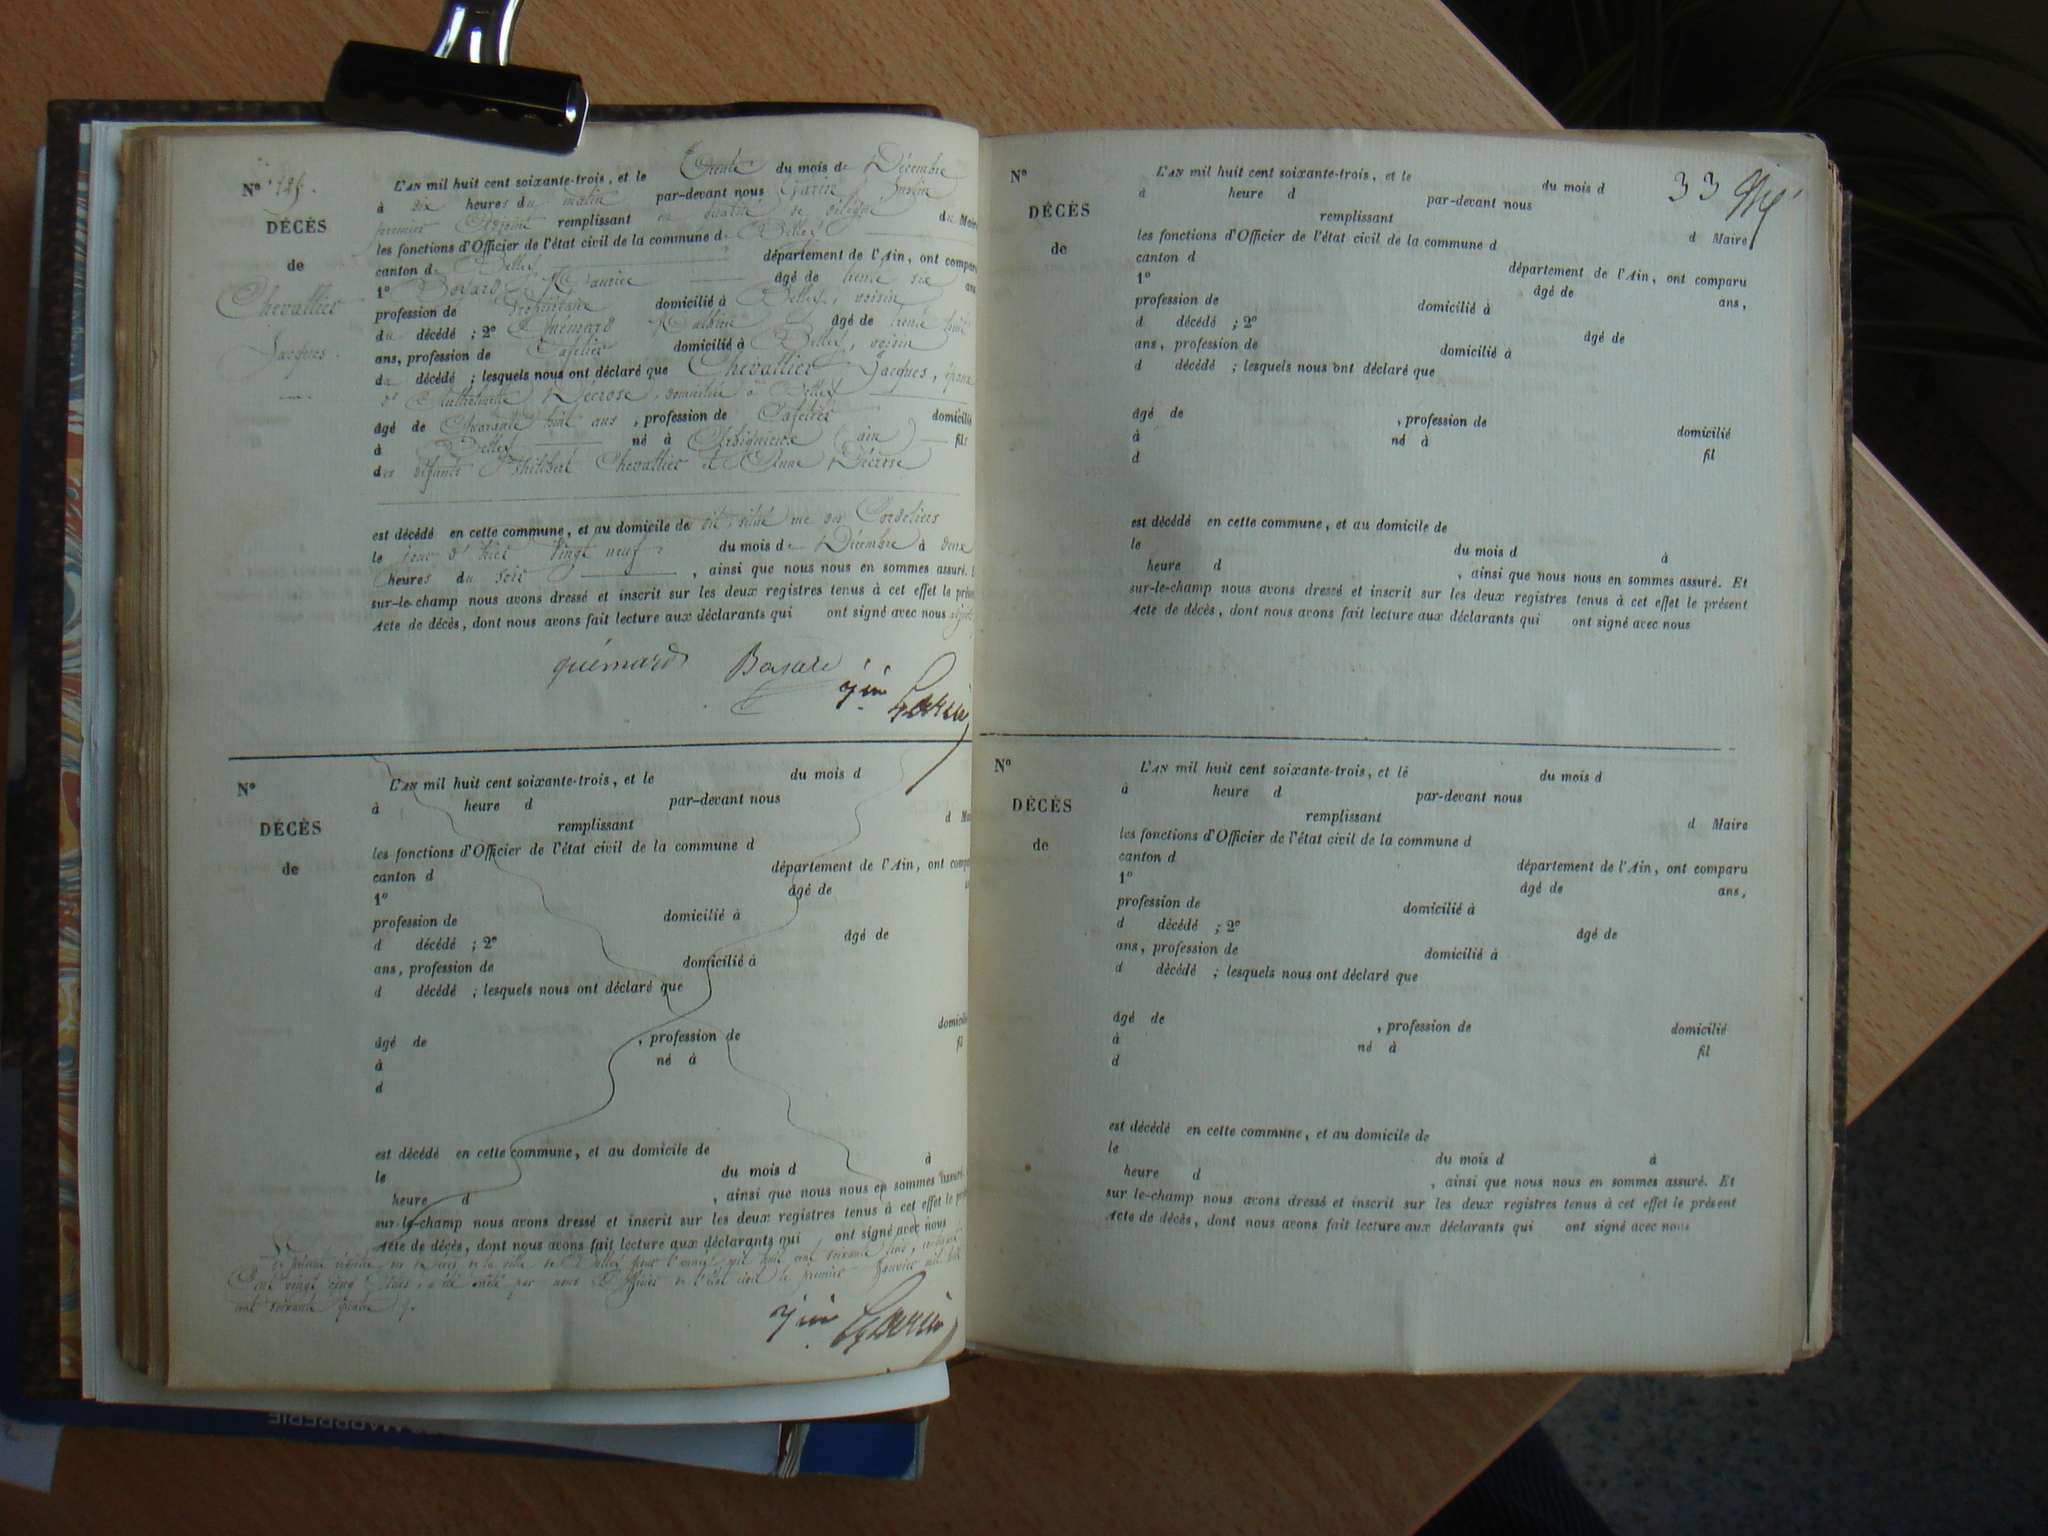 N° 125.
DÉCÈS
de
Chevallier
Jacques.
L'AN mil huit cent soixante-trois, et le Trente du mois de Décembre
à dix heures du matin par-devant nous Garin
premier Adjoint remplissant en qualité de délégué du Maire
les fonctions d'Officier de l'état civil de la commune de Belley
canton de Belley département de l'Ain, ont comparu
1° Maurice âgé de trente six ans
profession de Propriétaire domicilié à Belley, voisin
du décédé ; 2° âgé de trente huit
ans, profession de Cafetier domicilié à Belley, voisin
du décédé ; lesquels nous ont déclaré que Chevallier Jacques, époux
d' Décrose, domiciliée à Belley
âgé de Quarante huit ans, profession de Cafetier domicilié
à Belley né à (ain) fils
des défunts Philibert Chevallier et Anne Décrose
est décédé en cette commune, et au domicile de situé rue des Cordeliers
le jour d'hier Vingt neuf du mois de Décembre à onze
heures du soir, ainsi que nous nous en sommes assuré.
sur-le-champ nous avons dressé et inscrit sur les deux registres tenus à cet effet le présen
Acte de décès, dont nous avons fait lecture aux déclarants qui ont signé avec nous
quémard
Garin
N°
DÉCÈS
de
L'AN mil huit cent soixante-trois, et le du mois d
à heure d par-devant nous
remplissant d Mai
les fonctions d'Officier de l'état civil de la commune d
canton d département de l'Ain, ont compa
1° âgé de
profession de domicilié à
d décédé ; 2° âgé de
ans, profession de domicilié à
d décédé ; lesquels nous ont déclaré que
âgé de , profession de domicilié
à né à fil
d
est décédé en cette commune, et au domicile de
le du mois d à
heure d , ainsi que nous nous en sommes assuré.
sur-le-champ nous avons dressé et inscrit sur les deux registres tenus à cet effet le prés
Acte de décès, dont nous avons fait lecture aux déclarants qui ont signé avec nous
Le présent registre des décès de la ville de Belley pour l'année mil huit cent soixante trois, contenant
Cent vingt cinq actes, a été arrêté par nous Officier de l'état civil le premier Janvier mil huit
cent soixante quatre
Garin
33
N°
DÉCÈS
de
L'AN mil huit cent soixante-trois, et le du mois d
à heure d par-devant nous
remplissant d Maire
les fonctions d'Officier de l'état civil de la commune d
canton d département de l'Ain, ont comparu
1° âgé de ans,
profession de domicilié à
d décédé ; 2° âgé de
ans, profession de domicilié à
d décédé ; lesquels nous ont déclaré que
âgé de , profession de domicilié
à né à fil
d
est décédé en cette commune, et au domicile de
le du mois d à
heure d , ainsi que nous nous en sommes assuré. Et
sur-le-champ nous avons dressé et inscrit sur les deux registres tenus à cet effet le présent
Acte de décès, dont nous avons fait lecture aux déclarants qui ont signé avec nous
N°
DÉCÈS
de
L'AN mil huit cent soixante-trois, et le du mois d
à heure d par-devant nous
remplissant d Maire
les fonctions d'Officier de l'état civil de la commune d
canton d département de l'Ain, ont comparu
1° âgé de ans,
profession de domicilié à
d décédé ; 2° âgé de
ans, profession de domicilié à
d décédé ; lesquels nous ont déclaré que
âgé de , profession de domicilié
à né à fil
d
est décédé en cette commune, et au domicile de
le du mois d à
heure d , ainsi que nous nous en sommes assuré. Et
sur le-champ nous avons dressé et inscrit sur les deux registres tenus à cet effet le présent
Acte de décès, dont nous avons fait lecture aux déclarants qui ont signé avec nous
MARBRERIE